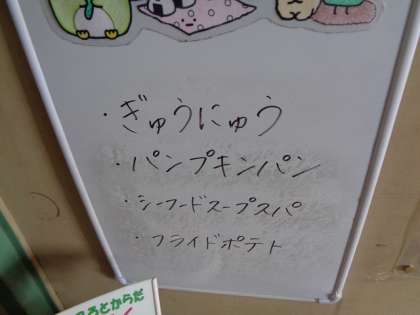 ・ぎゅうにゅう
・パンプキンパン
・シーフードスープスパ
・フライドポテト
ころとからだ